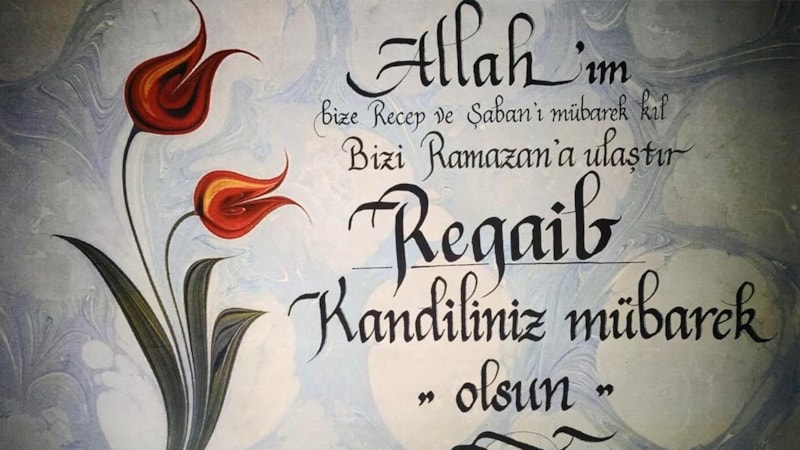 Allah'ım
bize Recep ve Şaban'ı mübarek kıl
Bizi Ramazan'a ulaştır
Regaib
Kandiliniz mübarek
„ olsun „